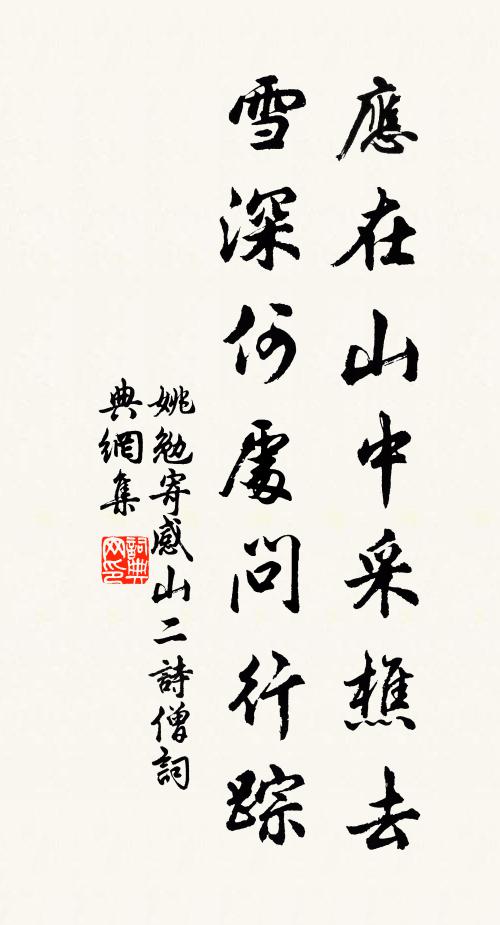 應在山中采樵去
雪深何處問行踪
姚勉寄感山二詩僧詞
典網集
詞典網印